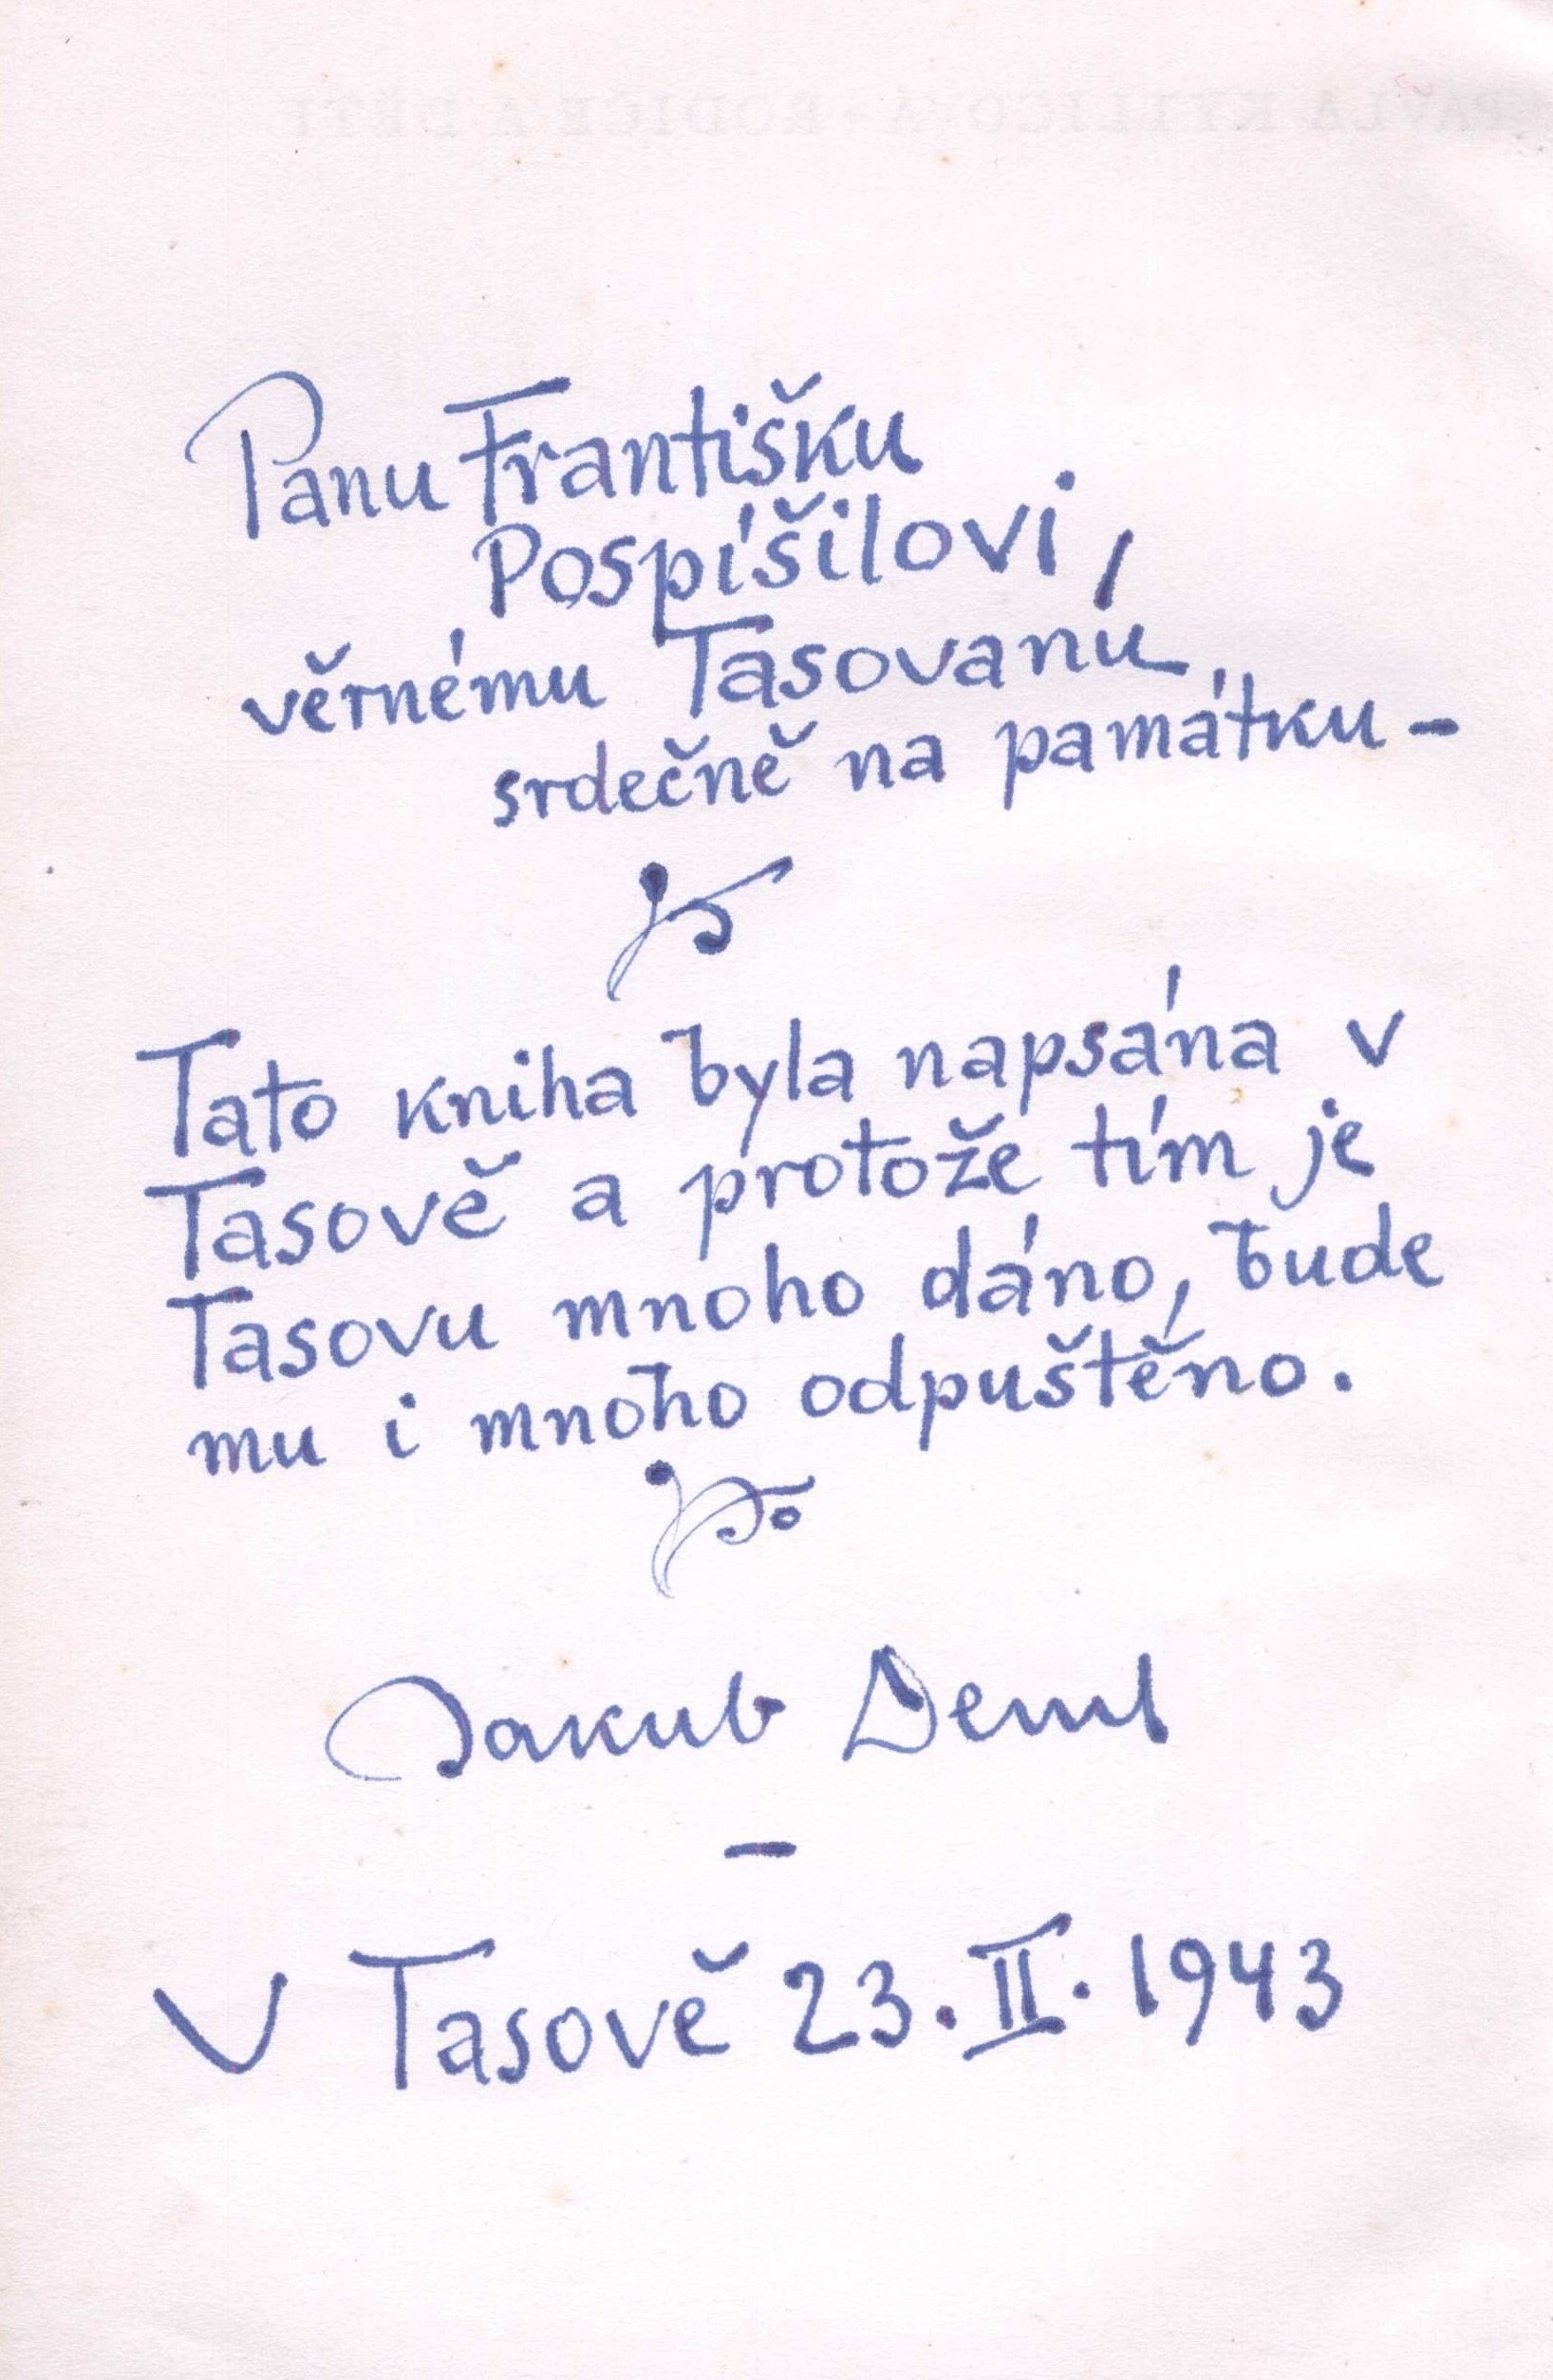 PAVLA KYTLICOVÁ - RODIČE A DĚTI
Panu Františku
Pospíšilovi,
věrnému Tasovanu
srdečně na památku -
Tato kniha byla napsána v
Tasově a protože tím je
Tasovu mnoho dáno, bude
mu i mnoho odpuštěno.
Jakub Deml
-
V Tasově 23. II. 1943